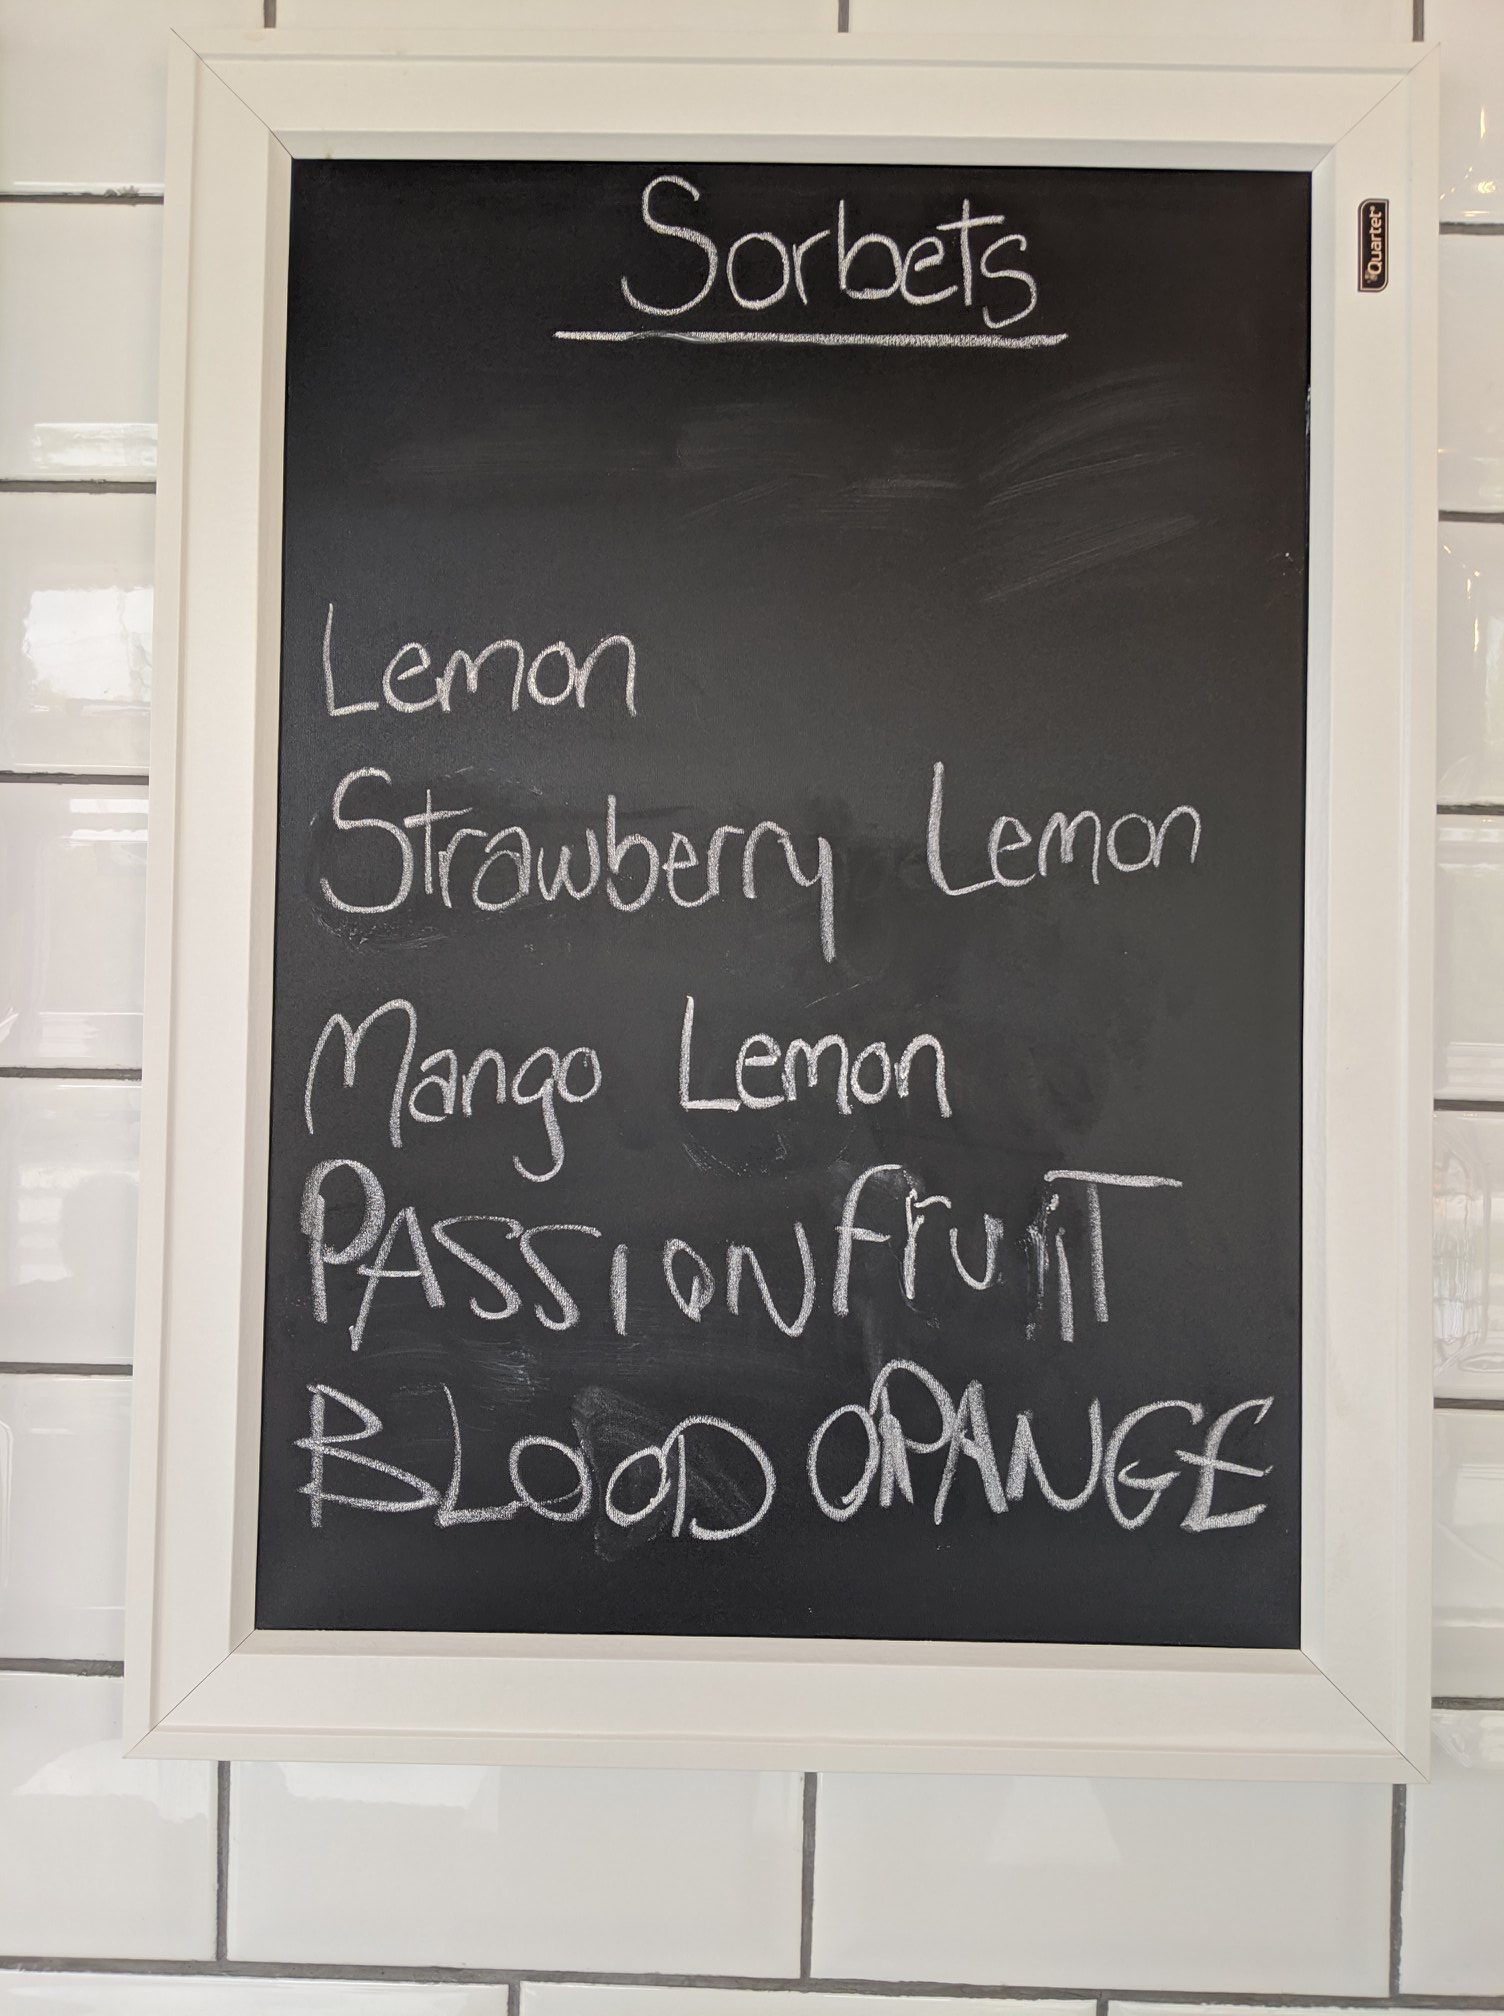 Sorbets
Quartet®
Lemon
Strawberry Lemon
Mango Lemon
PASSIONfruIT
BLOOD ORANGE